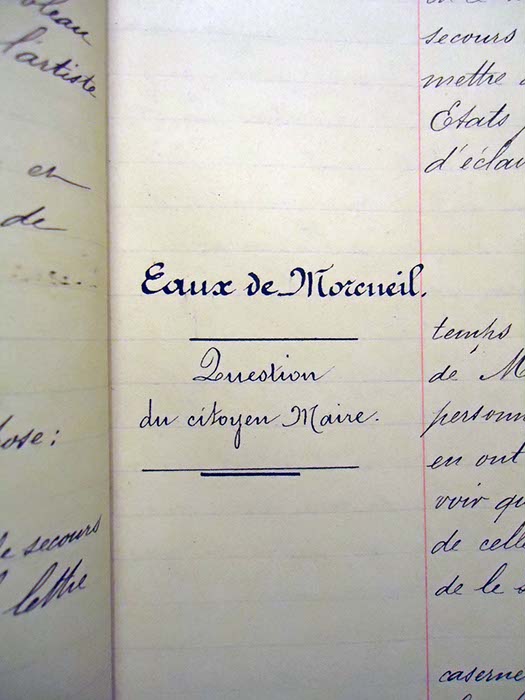 bleau
l'artiste
et
de
ose :
le secours
lettre
Eaux de Morcueil.
Question
du citoyen Maire.
secours
mettre
Etats
d'éclai
temps
de M
personn
en ont
voir qu
de celle
de le s
caserne